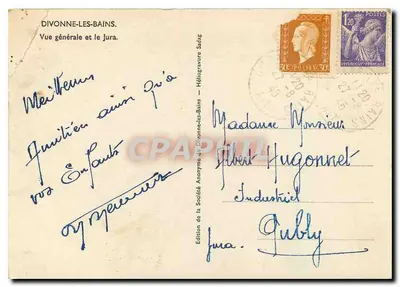 DIVONNE-LES-BAINS.
Vue générale et le Jura.
Meilleures
Amitiés ainsi qu'à
vos Enfants
Edition de la Société Anonyme de Divonne-les-Bains - Héliogravure Sadag
Madame Monsieur
Albert Hugonnet
Industriel
Jura.
CPARAMA